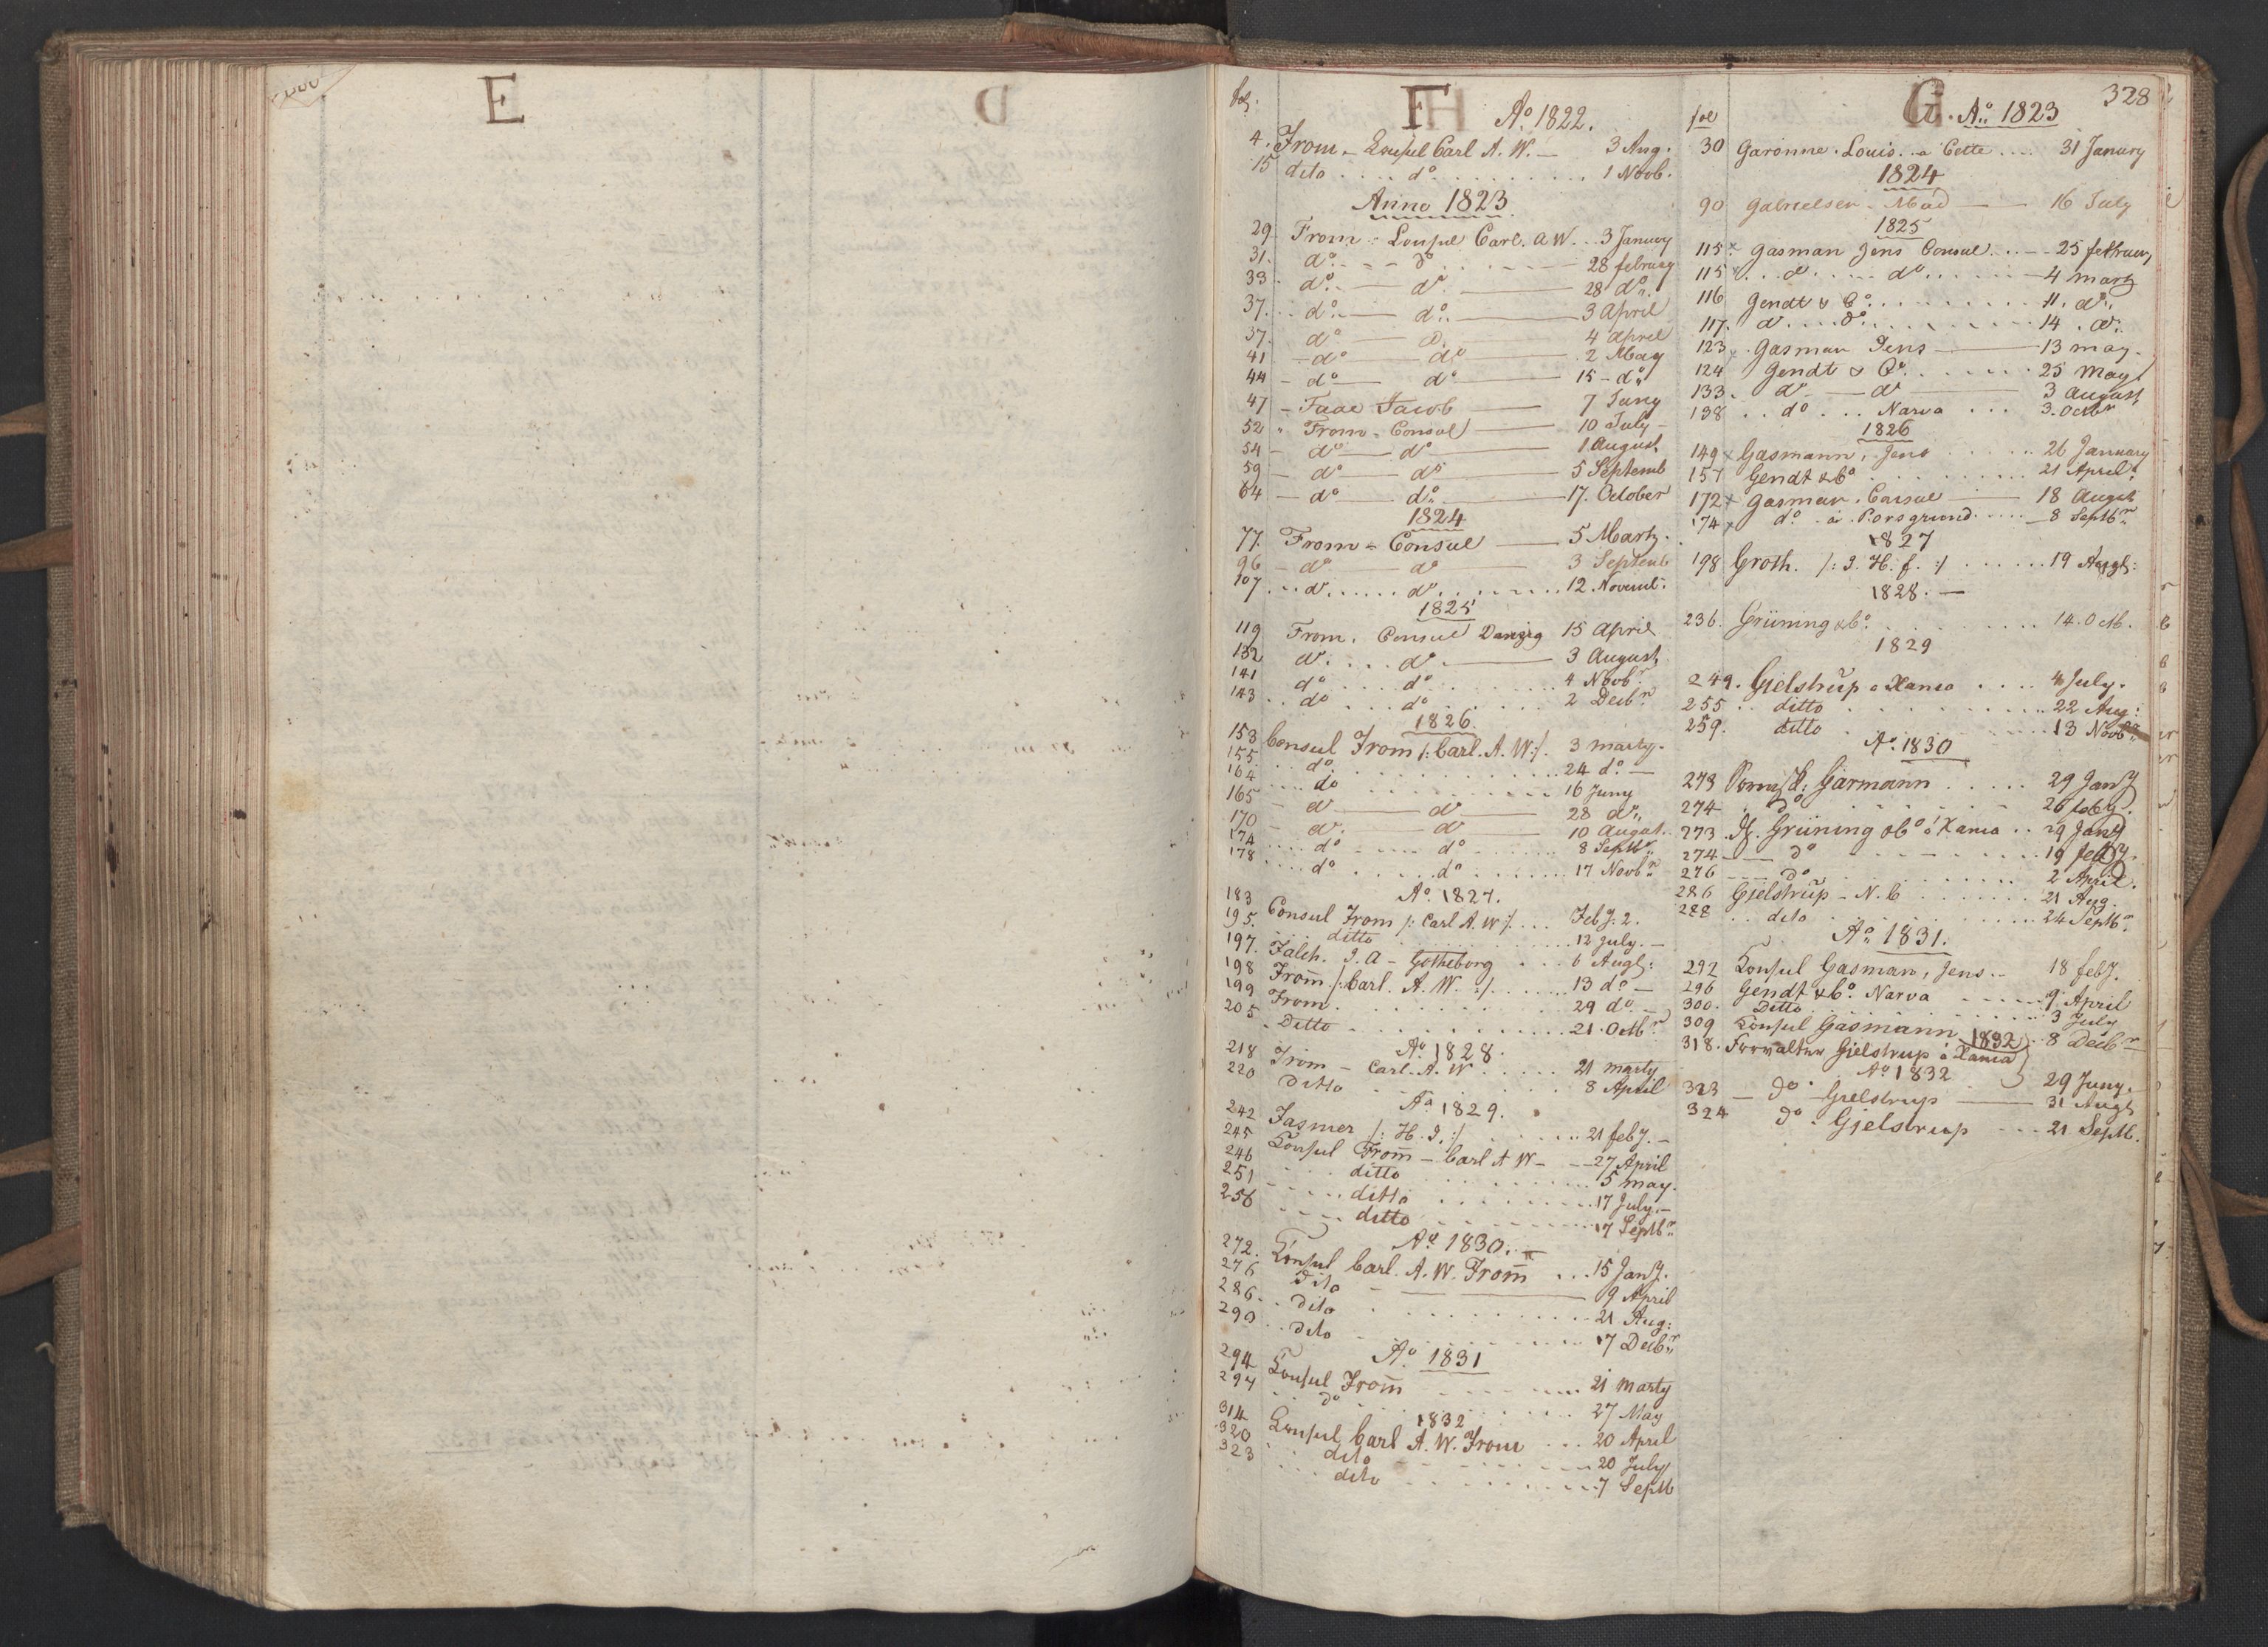 E
fol:
F
Ao 1822.
4. From - Consul Carl A. W. — 3 Aug.
15 dito .... do ......... 1 Novb.
Anno 1823
29 From - Consul Carl. A W. .. 3 January
31. do. - - do ....— 28 february
33 do. — do — 28 do.
37. .. do. — do. — 3 April
37. do — do. — 4 April
41 - do do — 2 May
44 - do — do — 15 - do
47 - Jacob — 7 Juny
52 " From - Consul — 10 July -
54 - do — do — 1 August
59 - do — do — 5 Septemb
64 - do — do — 17. October
1824
77. From - Consul — 5 Marty.
96 - do — do — 3 Septemb
107 ... do ...... do ........ 12 Novemb.
1825
119 From. Consul Danzig 15 April
132 do. ... do. — 3 August
141 do .... do ....... 4 Novbr.
143 .. do ... do ...... 2 Decbr.
1826
153 Consul From /: Carl. A. W:/. 3 marty.
155. .. do ............ 24 do. —
164 .... do ........... 16 Juny
165 - do — do — 28 do.
170 - do. — do — 10 August.
174 .... do ..... do ....... 8 Septbr.
178 .... do ..... do ....... 17 Novbr.
Ao. 1827.
183 Consul From /: Carl A. W:/ .... Feby. 2.
195. .... ditto ........ 12 July. —
197. Falch. J. A - Gotheborg ... 6 Augt:
198 From /: Carl. A. W. :/. ..... 13 do —
199 From ............ 29 do —
205 . Ditto ............ 21. Octbr.
Ao. 1828.
218 From - Carl. A. W ..... 21 marty
220 Ditto ......... 8 April
Ao 1829.
242 Fasmer /: H. J. :/ ...... 21 feby. —
245 Consul From - Carl A W — 27 April
246 .... ditto ......... 5 may.
251 ..... ditto ........ 17 July. —
256 ..... ditto ........ 17 Septbr.
Ao 1830. —
272. Consul Carl. A. W. From ... 15 Jany.
276 Dito — 9 April
286. .. dito ......... 21 Aug:
290 .. Dito ......... 17 Decbr.
Ao 1831
294 Consul From ..... 21 Marty
297 .. do ......... 27 May
1832
314 Consul Carl A. W. From ... 20 April
320 .. dito ........ 20 July
323 ... dito ........ 7 Septb
328
fol
G. Ao. 1823
30 Garonne. Louis. a Cette .... 31 January
1824
90 Gabrielsen - Mad — 16 July
1825
115 x Gasman Jens Consul ... 25 februar,
115 x .. do ..... do ...... 4 marty
116 Gendt & Co. ......... 11. do.
117. do .... do ......... 14. do.
123 x Gasman Jens — 13 may.
124 Gendt & Co. ...... 25 May
133. do — do — 3 August
138 .. do ... Narva ... 3. Octbr
1826
149 x Gasmann, Jens ...... 26 January
157 Gendt & Co ......... 21 April.
172 x Gasman. Consul — 18 August
174 x do - a. Porsgrund ..... 8 Septbr.
1827
198 Groth. /: J. H. f. :/ ...... 19 Augt:
1828. —
236. Grüning & Co. ........ 14. Octb.
1829
249. Gjelstrup a Xania .... 4 July.
255 .. ditto ......... 22 Aug:
259. ditto ......... 13 Novbr.
Ao. 1830
273 Garmann ..... 29 Jany
274 . do ....... 26 feby.
273 . Grüning & Co a Xania .. 29 Jany
274 — do ....... 19 feby.
276 --- do ........ 2 April.
286 Gjelstrup - N. C ....... 21 Aug.
288 .. dito ......... 24 Septbr.
Ao 1831.
292 Consul Gasman, Jens. - 18 feby.
296 Gendt & Co. Narva ..... 9 April
300. Ditto .......... 3 July
309 Consul Gasmann .. 8 Decbr
1832
318. Forvalter Gjelstrup a Xania
Ao 1832
29 Juny.
323 — do. Gjelstrup — 31 Augt
324 do. Gjelstrup --- 21 Septb.